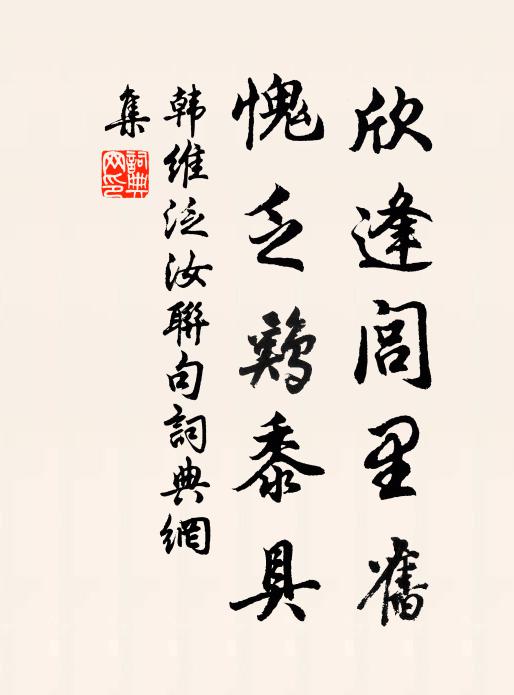 欣逢閭里舊
愧乏鷄黍具
韩維泛汝聯句詞典網
集
詞典
网印